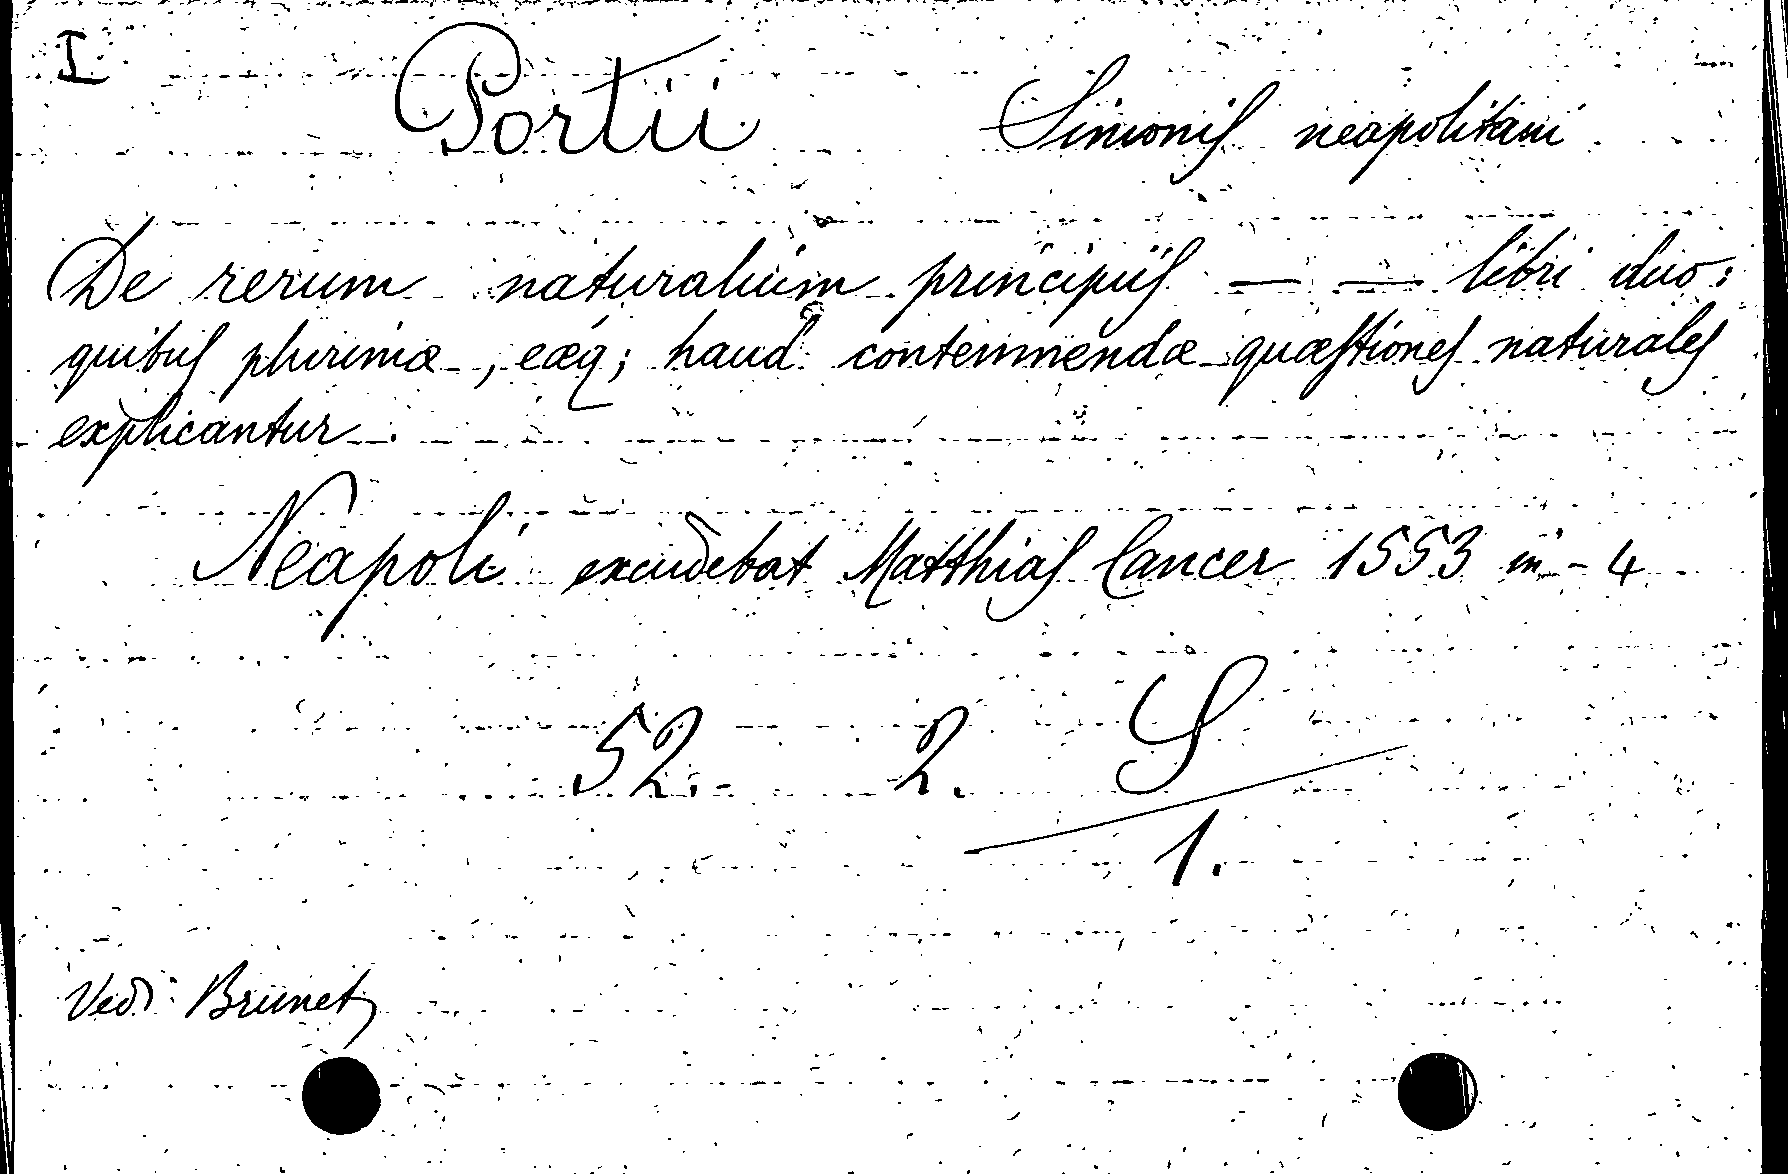 I
Portii Simonis neapolitani
De rerum naturalium principiis — — libri duo:
quibus plurimæ, eæq; haud contemnendæ quæstiones naturales
explicantur.
Neapoli excudebat Matthias Cancer 1553 in-4
52. 2. S
1.
Vedi Brunet